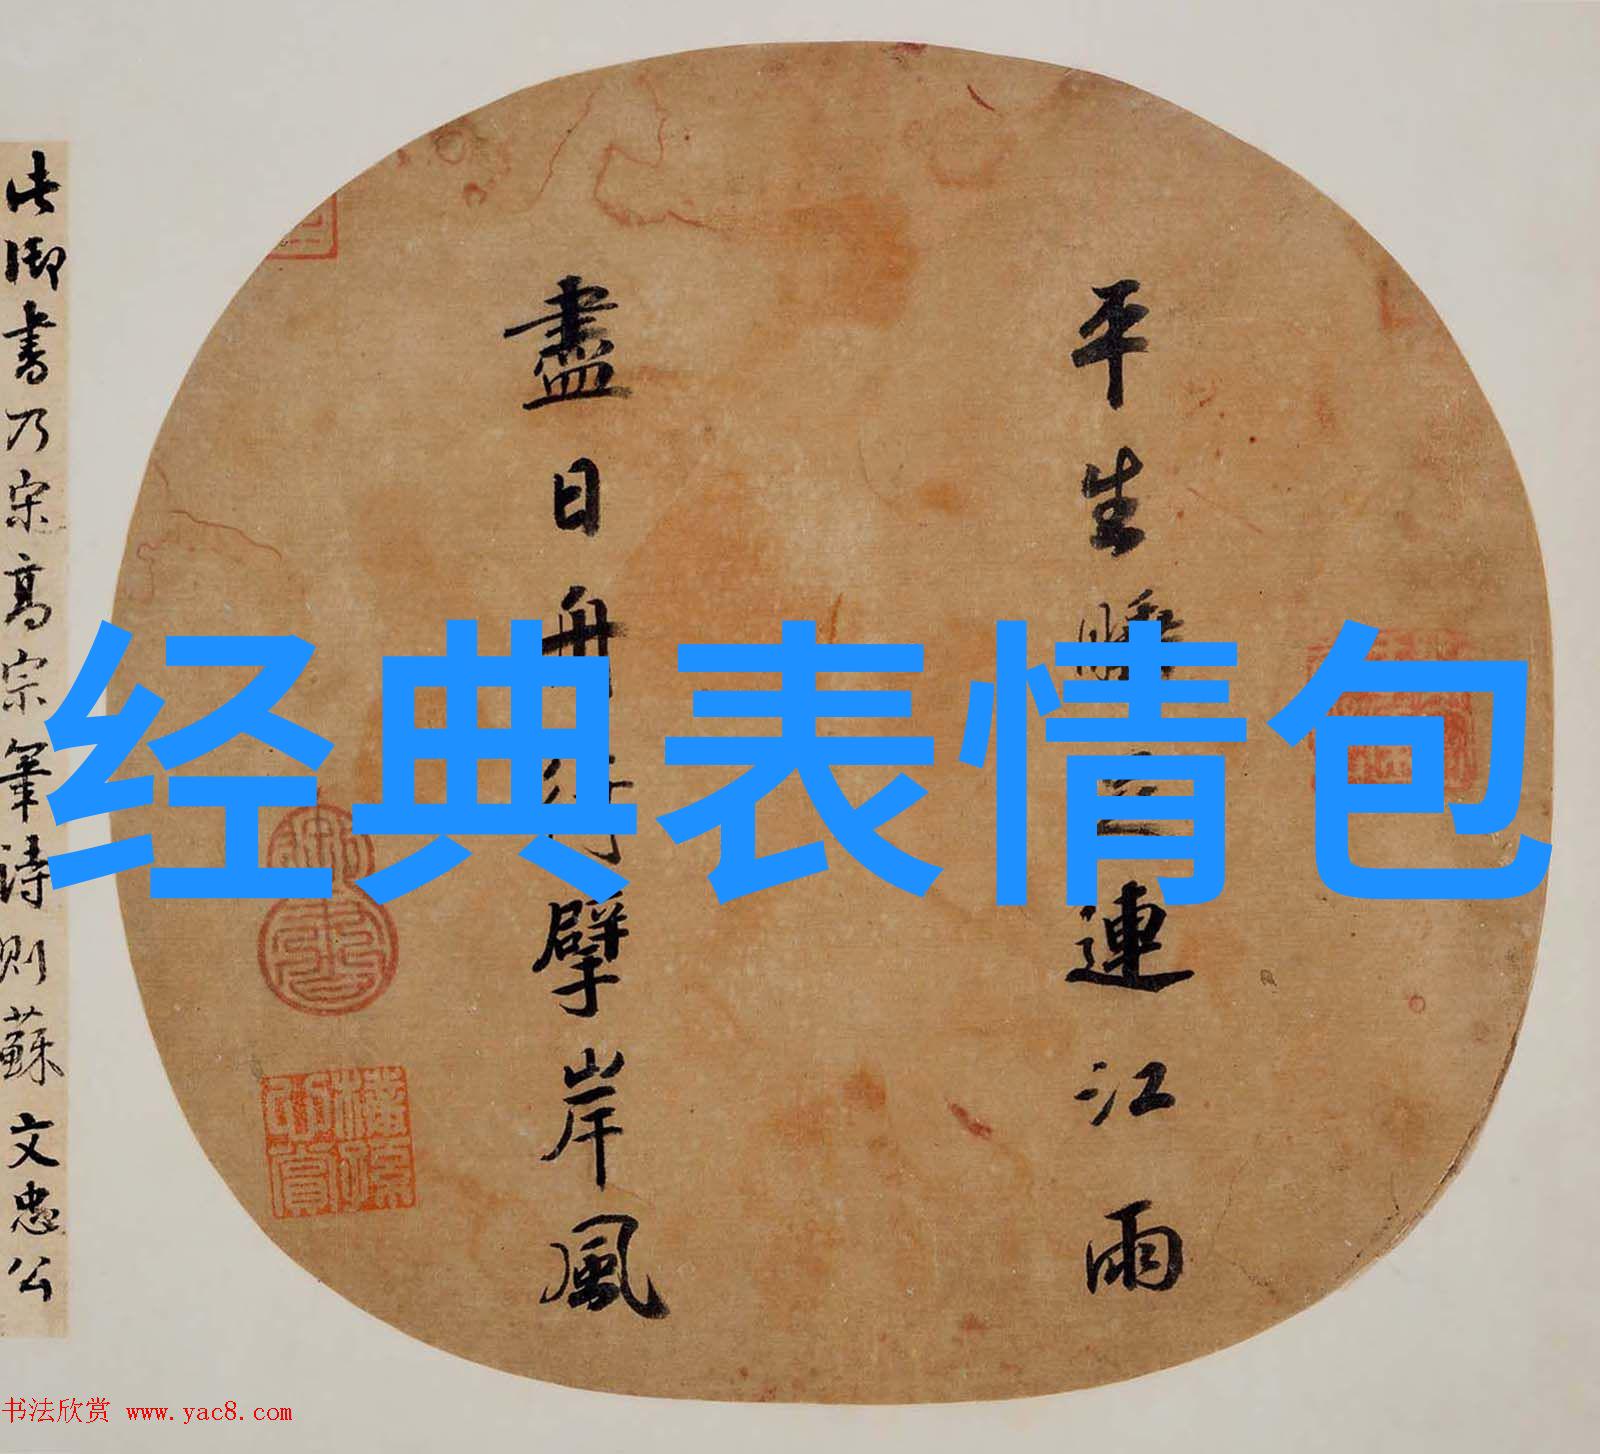 平生睡連江雨
盡日舟行擘岸風
此御書乃宋高宗筆詩則蘇文忠公
经典表情包
书法欣赏 www.yac8.com